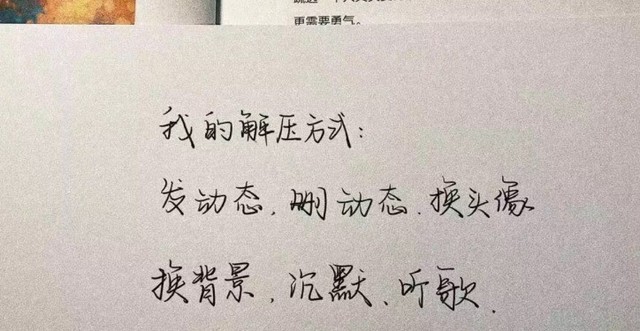 更需要勇气。
我的解压方式：
发动态、删动态、换头像
换背景、沉默、听歌、